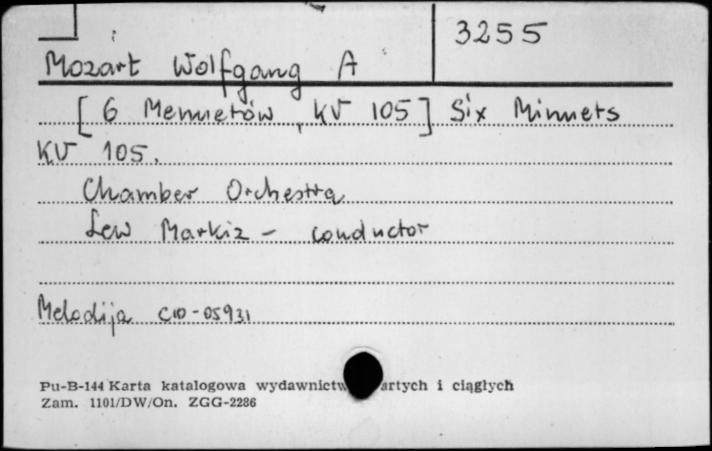 3255
Mozart Wolfgang A
[6 Menuetów, KV 105] Six Minuets
KV 105.
Chamber Orchestra
Lew Markiz - conductor
Melodija C10-05931
Pu-B-144 Karta katalogowa wydawnictw artych i ciągłych
Zam. 1101/DW/On. ZGG-2286